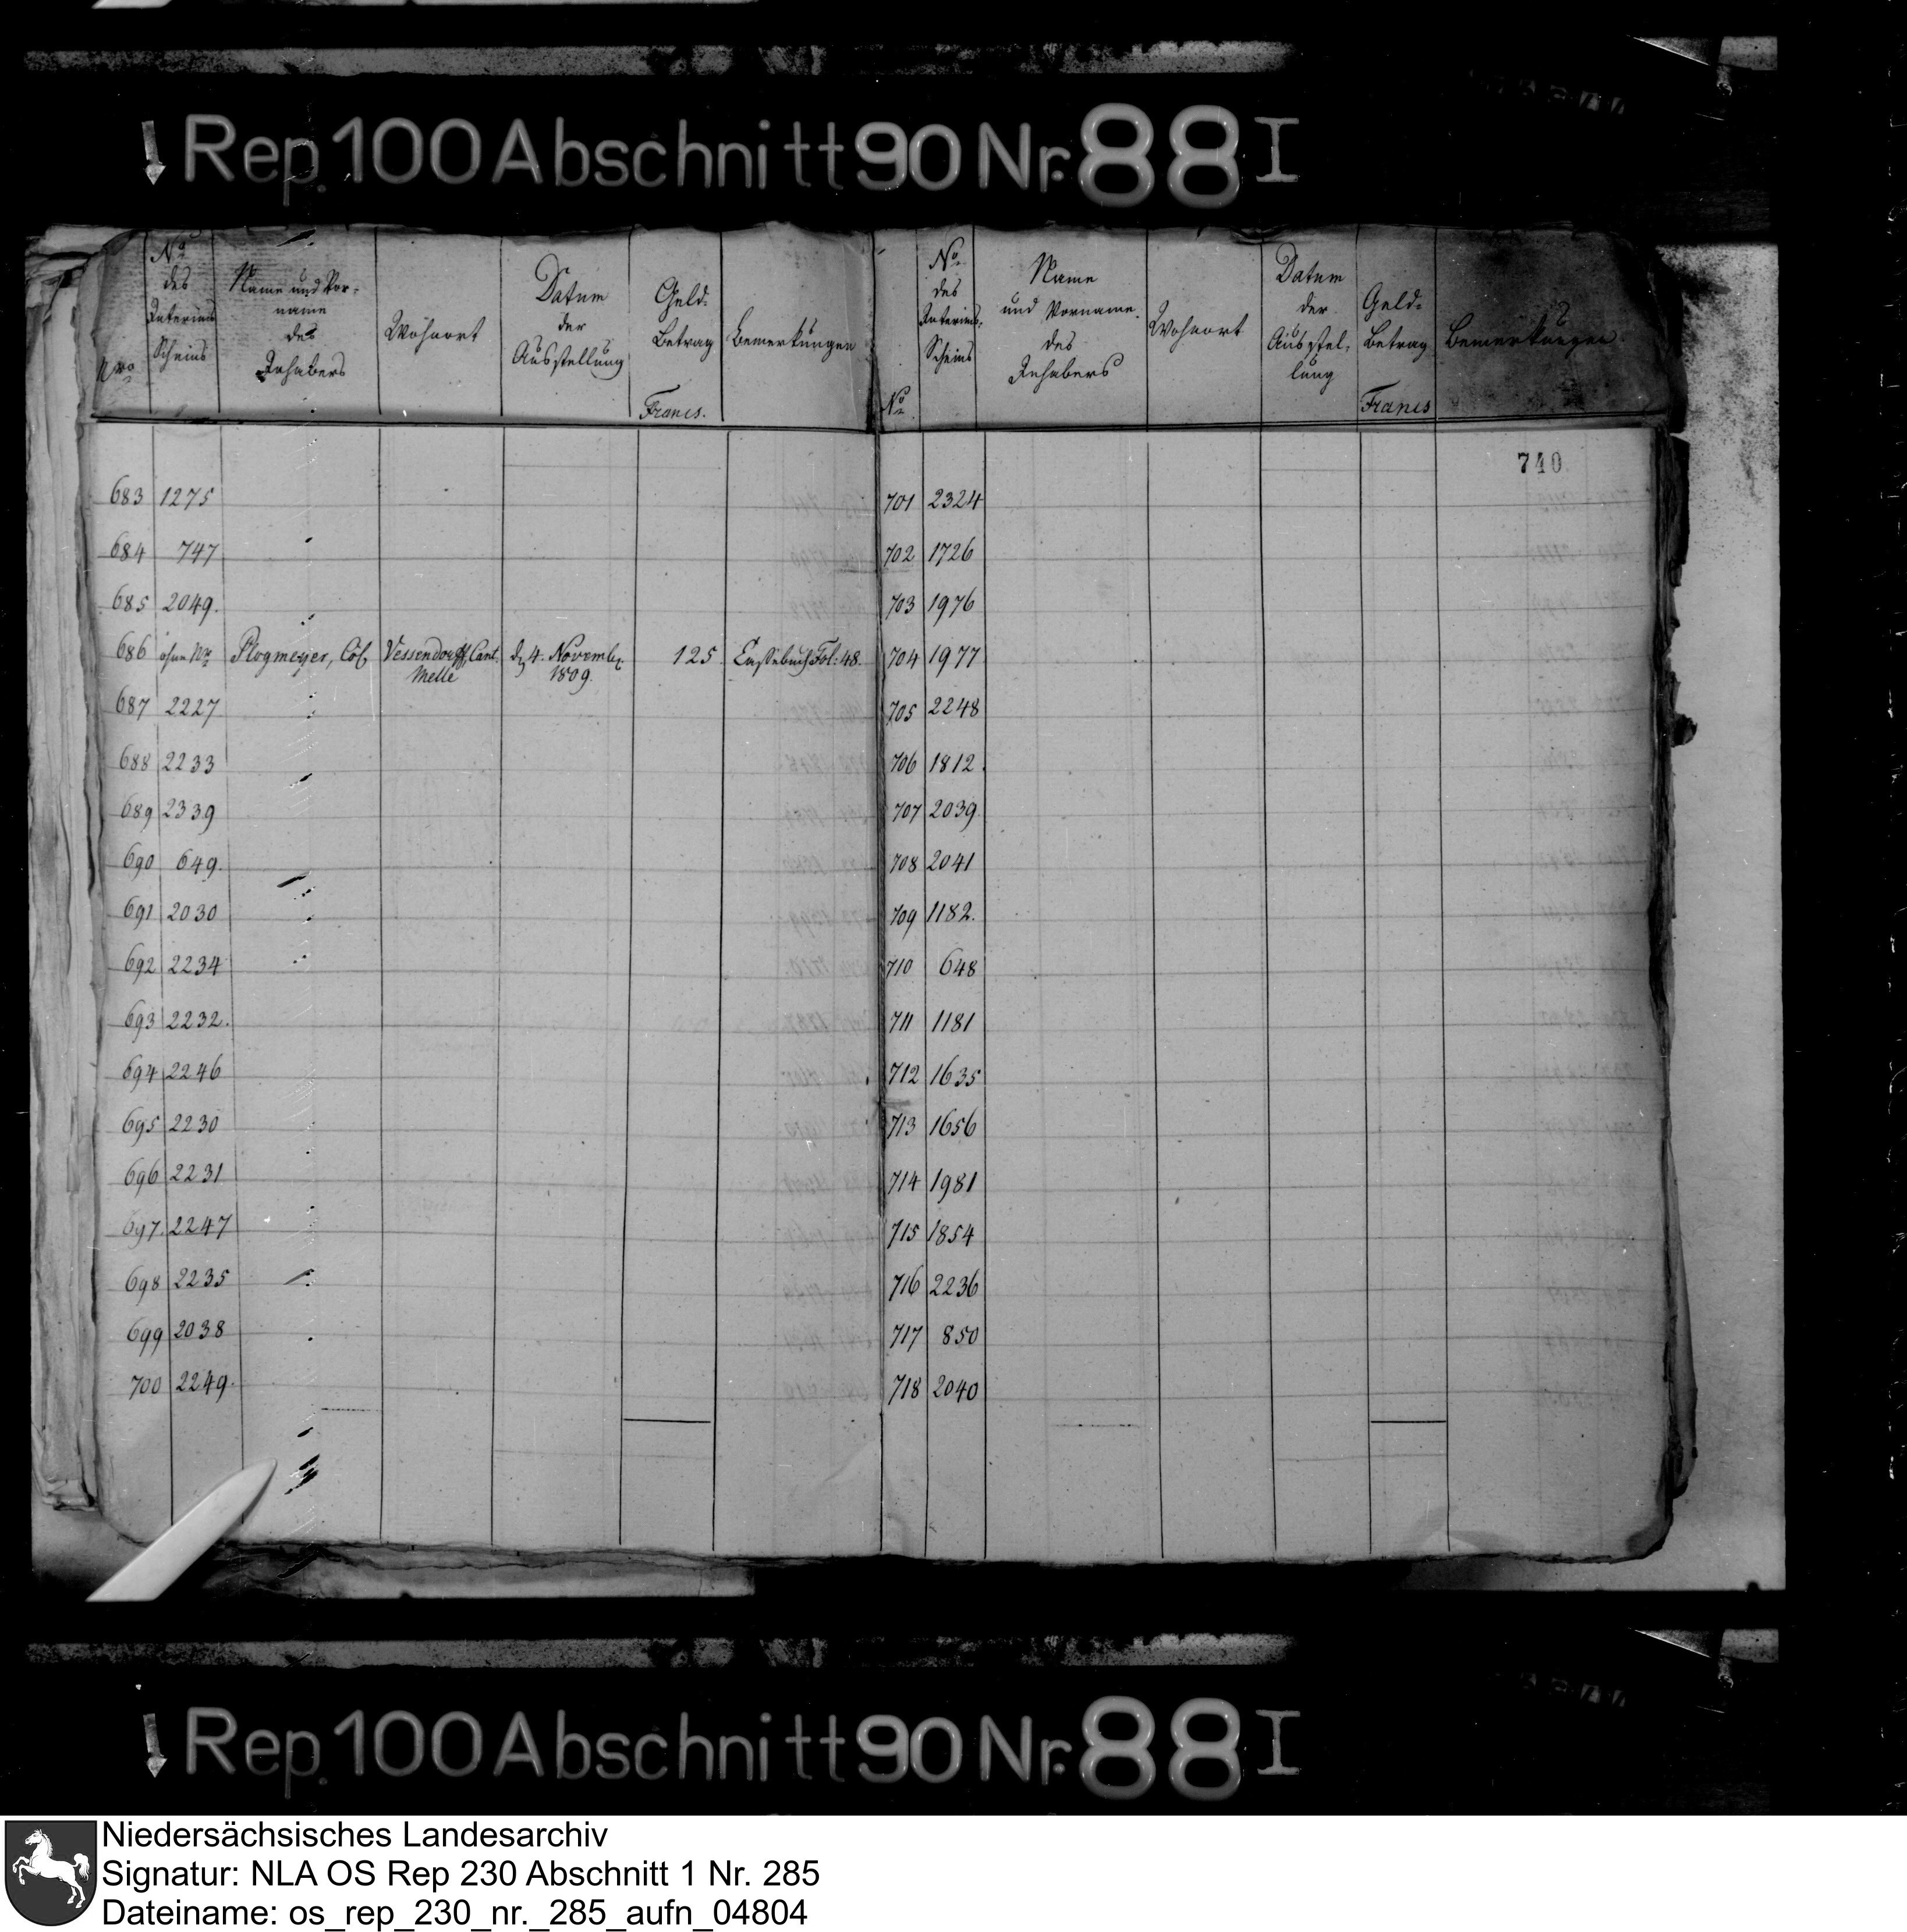 Rep. 100 Abschnitt 90 Nr. 88 I
Nro
No
des
Interims
Scheins
Name und Vor-
name
des
Inhabers
Wohnort
Datum
der
Ausstellung
Geld-
Betrag
Francs.
Bemerkungen
No
No
des
Interims-
Scheins
Name
und Vorname
des
Inhabers
Wohnort
Datum
der
Ausstel-
lung
Geld-
Betrag
Francs
Bemerkungen
740
683 1275
684 747
685 2049.
686 ohne Nro Plogmeyer, Col. Vessendorff, Cant. d. 4. Novembr. 125 Cassebuch Fol: 48.
Melle 1809.
687 2227
688 2233
689 2339
690 649.
691 2030
692 2234
693 2232.
694 2246
695 2230
696 2231
697. 2247
698 2235
699 2038
700 2249.
701 2324
702 1726
703 1976
704 1977
705 2248
706 1812.
707 2039
708 2041
709 1182.
710 648
711 1181
712 1635
713 1656
714 1981
715 1854
716 2236
717 850
718 2040
Rep. 100 Abschnitt 90 Nr. 88 I
Niedersächsisches Landesarchiv
Signatur: NLA OS Rep 230 Abschnitt 1 Nr. 285
Dateiname: os_rep_230_nr._285_aufn_04804